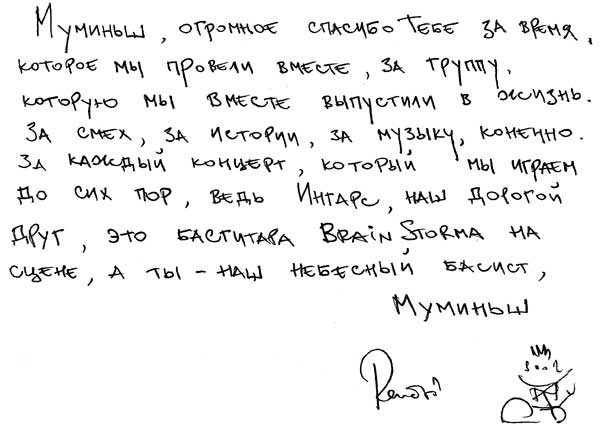 Муминьш, огромное спасибо тебе за время,
которое мы провели вместе, за группу,
которую мы вместе выпустили в жизнь.
За смех, за истории, за музыку, конечно.
За каждый концерт, который мы играем
до сих пор, ведь Ингарс, наш дорогой
друг, это басгитара BrainStorma на
сцене, а ты – наш небесный басист,
Муминьш